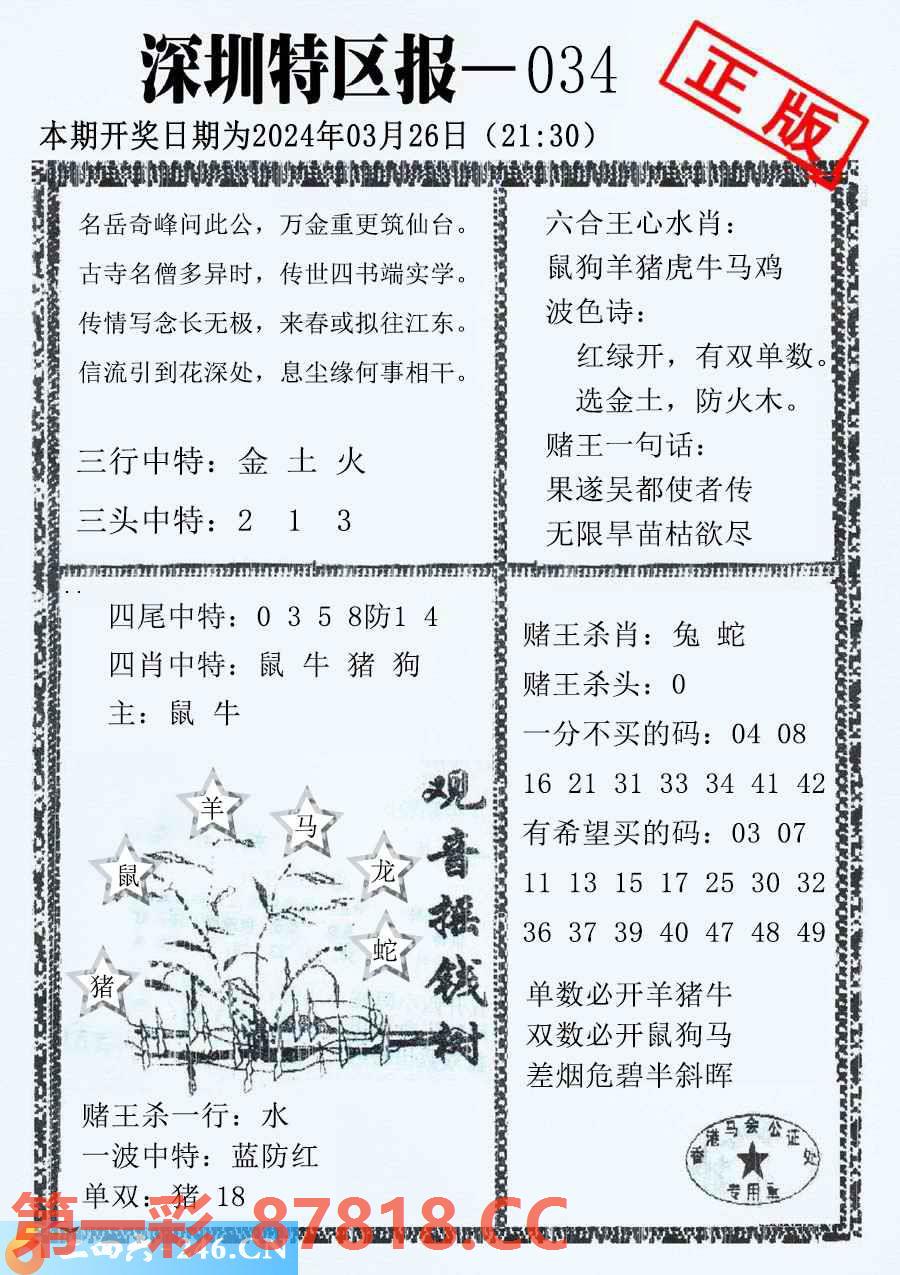 深圳特区报—034
正版
本期开奖日期为2024年03月26日（21:30）
名岳奇峰问此公，万金重更筑仙台。
古寺名僧多异时，传世四书端实学。
传情写念长无极，来春或拟往江东。
信流引到花深处，息尘缘何事相干。
三行中特：金 土 火
三头中特：2 1 3
六合王心水肖：
鼠狗羊猪虎牛马鸡
波色诗：
红绿开，有双单数。
选金土，防火木。
赌王一句话：
果遂吴都使者传
无限旱苗枯欲尽
四尾中特：0 3 5 8防1 4
四肖中特：鼠 牛 猪 狗
主：鼠 牛
羊
马
鼠
龙
蛇
猪
观音摇钱树
赌王杀一行：水
一波中特：蓝防红
单双：猪 18
赌王杀肖：兔 蛇
赌王杀头：0
一分不买的码：04 08
16 21 31 33 34 41 42
有希望买的码：03 07
11 13 15 17 25 30 32
36 37 39 40 47 48 49
单数必开羊猪牛
双数必开鼠狗马
差烟危碧半斜晖
香港马会公证处
专用章
第一彩 87818.CC
246.CN